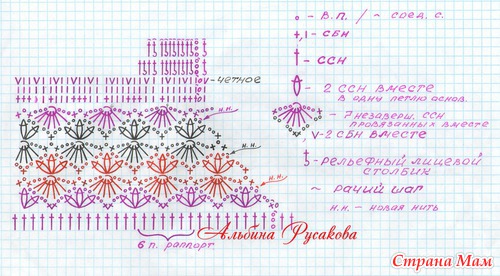 о - В.П. / ⌒ соед. с.
+, ı - СБН
† - ССН
- 2 ССН вместе
в одну петлю основ.
- 7 незаверш. ССН
провязанных вместе
v - 2 СБН вместе
- рельефный лицевой
столбик
~ рачий шаг
н.н. - новая нить
v - четное
н.н.
н.н.
н.н.
н.н.
6 п. раппорт
Альбина Русакова
Страна Мам